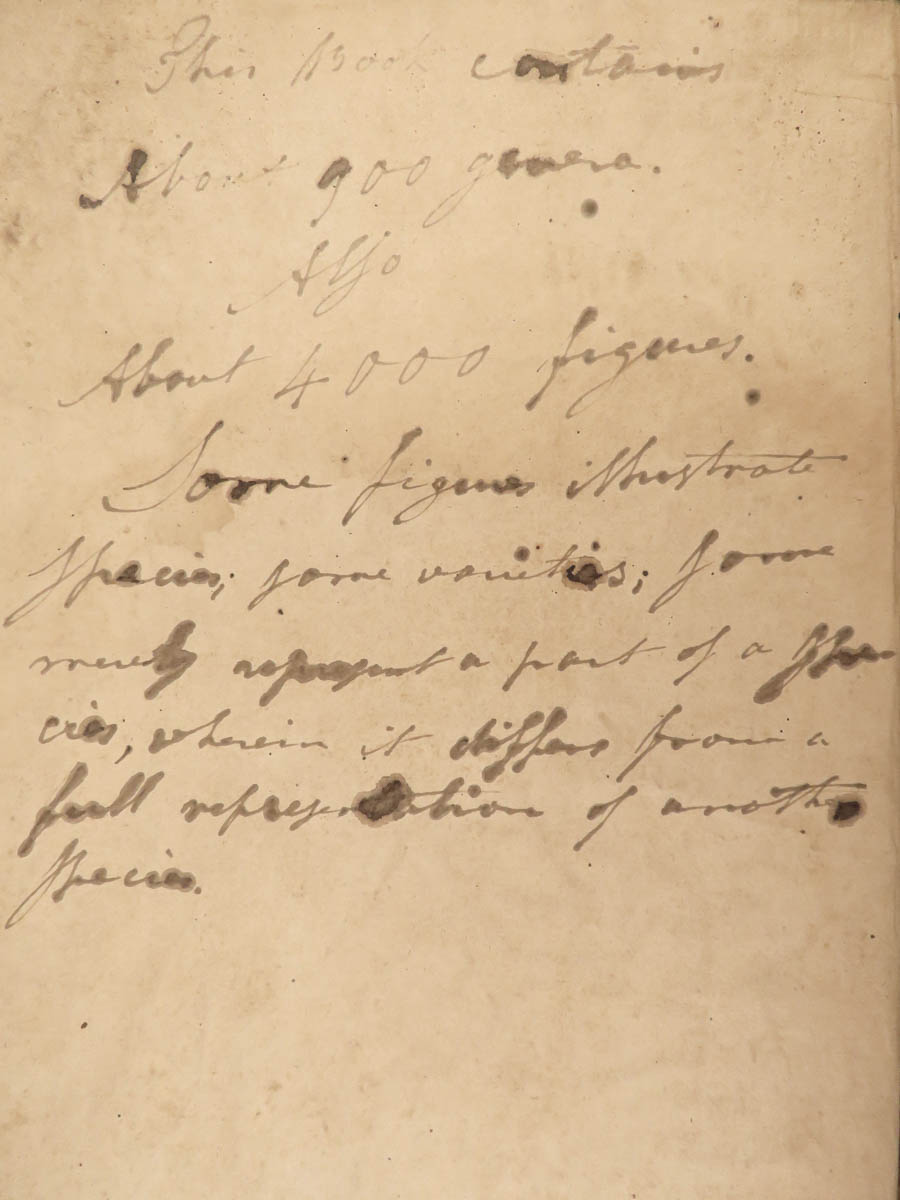 This Book contains
About 900 genera.
Also
About 4000 figures.
Some figures illustrate
species; some varieties; some
merely represent a part of a spe-
cies, wherein it differs from a
full representation of another
species.